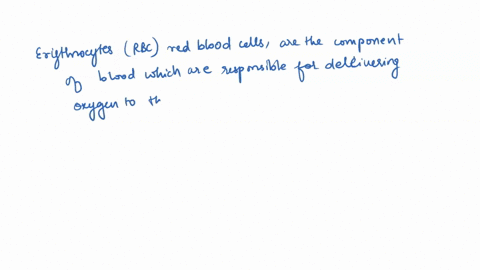 Erythrocytes (RBC) red blood cells, are the component
of blood which are responsible for dellivering
oxygen to th